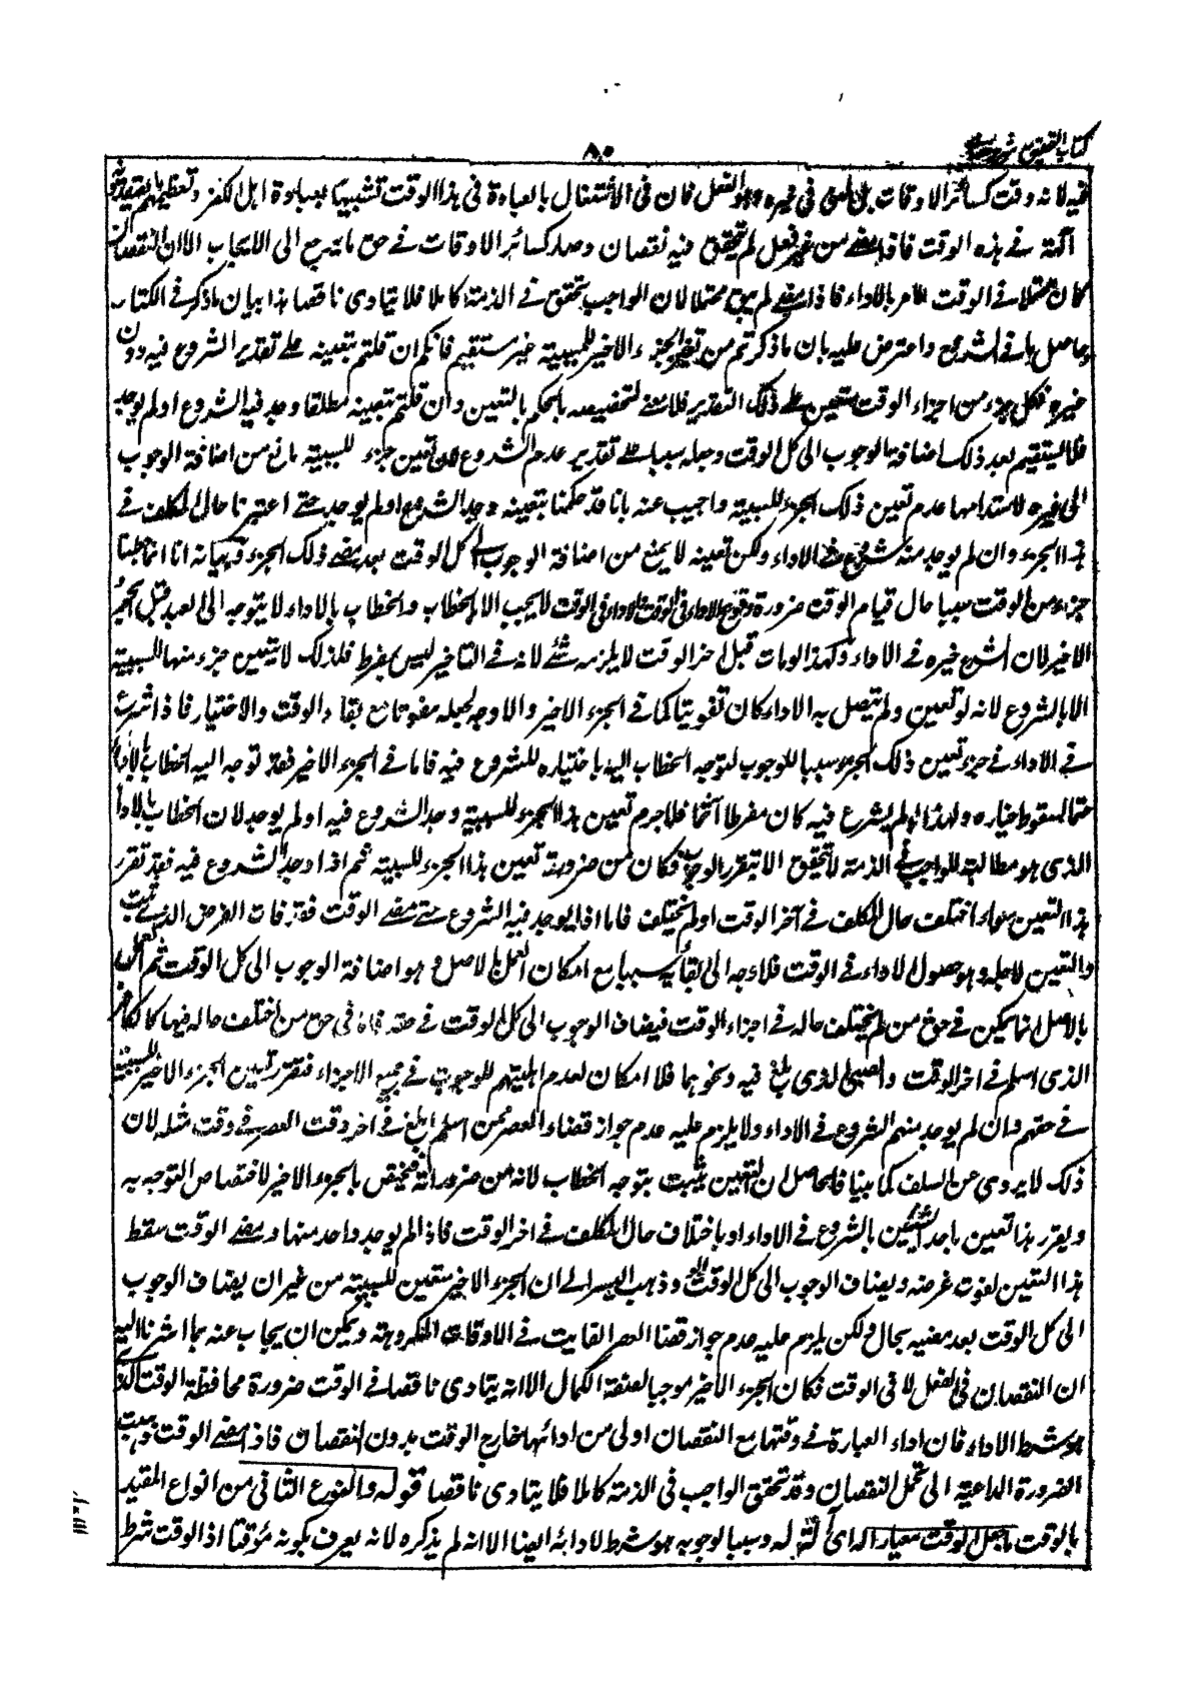 كتاب التحقيق شرح
٨٠
فيه لانه وقت كسائر الاوقات بل لمعنى فى غيره وهو الفعل فان فى الاشتغال بالعبادة فى هذا الوقت تشبيها بعبادة اهل الكفر وتعظيمهم
آلهة فى هذه الوقت فاذا مضى من غير فعل لم يتحقق فيه نقصان وصار كسائر الاوقات فى حق ما يرجع الى الايجاب الا ان النقصان
كان محتملا فى الوقت للامر بالاداء فاذا مضى لم يبق محتملا لان الواجب تحقق فى الذمة كاملا فلا يتادى ناقصا هذا بيان ما ذكر فى الكتاب
وحاصل ما فى الشروح واعترض عليه بان ما ذكرتم من تعين الجزء الاخير للسببية غير مستقيم فانكم ان قلتم بتعينه على تقدير الشروع فيه دون
غيره فكل جزء من اجزاء الوقت متعين على ذلك التقدير فلا معنى لتخصيصه بالحكم بالتعين وان قلتم بتعينه مطلقا وجد فيه الشروع او لم يوجد
فلا يستقيم بعد ذلك اضافة الوجوب الى كل الوقت وجعله سببا على تقدير عدم الشروع لان تعين جزء للسببية مانع من اضافة الوجوب
الى غيره لاستلزامها عدم تعين ذلك الجزء للسببية واجيب عنه بانا قد حكمنا بتعينه وجد الشروع او لم يوجد حتى اعتبرنا حال المكلف فى
هذا الجزء وان لم يوجد منه شروع فى الاداء ولكن تعينه لا يمنع من اضافة الوجوب الى كل الوقت بعد مضى ذلك الجزء وبيانه انا انما جعلنا
جزء من الوقت سببا حال قيام الوقت ضرورة وقوع الاداء فى الوقت والاداء فى الوقت لا يجب الا بالخطاب والخطاب بالاداء لا يتوجه الى العبد قبل الجزء
الاخير لان الشرع خيره فى الاداء ولهذا لو مات قبل اخر الوقت لا يلزمه شئ لانه فى التاخير ليس بمفرط فلذلك لا يتعين جزء منها للسببية
الا بالشروع لانه لو تعين ولم يتصل به الاداء كان تفويتا كما فى الجزء الاخير والا وجه لجعله مفوتا مع بقاء الوقت والاختيار فاذا شرع
فى الاداء فى جزء تعين ذلك الجزء سببا للوجوب لتوجه الخطاب اليه باختياره للشروع فيه فاما فى الجزء الاخير فقد توجه اليه الخطاب بالاداء
حتما لسقوط خياره ولهذا لو لم يشرع فيه كان مفرطا آثما فلا جرم تعين هذا الجزء للسببية وجد الشروع فيه او لم يوجد لان الخطاب بالاداء
الذى هو مطالبة للواجب فى الذمة لا يتحقق الا بتقرر الوجوب فكان من ضرورته تعين هذا الجزء للسببية ثم اذا وجد الشروع فيه فقد تقرر
هذا التعين سواء اختلف حال المكلف فى آخر الوقت او لم يختلف فاما اذا لم يوجد فيه الشروع حتى مضى الوقت فقد فات الغرض الذى ثبت
والتعين لاجله وهو حصول الاداء فى الوقت فلا وجه الى بقائه سببا مع امكان العمل بالاصل وهو اضافة الوجوب الى كل الوقت ثم العمل
بالاصل انما يمكن فى حق من لم يختلف حاله فى اجزاء الوقت فيضاف الوجوب الى كل الوقت فى حقه فاما فى حق من اختلف حاله فيها كالكافر
الذى اسلم فى اخر الوقت والصبى الذى بلغ فيه ونحوهما فلا امكان لعدم اهليتهم للوجوب فى جميع الاجزاء فتقرر تعين الجزء الاخير للسببية
فى حقهم وان لم يوجد منهم الشروع فى الاداء ولا يلزم عليه عدم جواز قضاء العصر ممن اسلم او بلغ فى اخر وقت العصر فى وقت مثله لان
ذلك لا يروى عن السلف كما بينا فالحاصل ان التعين يثبت بتوجه الخطاب لانه من ضروراته فيختص بالجزء الاخير لاختصاص التوجه به
ويقرر هذا تعين باحد الشيئين بالشروع فى الاداء او باختلاف حال المكلف فى اخر الوقت فاذا لم يوجد واحد منهما ومضى الوقت سقط
هذا التعين لفوت غرضه ويضاف الوجوب الى كل الوقت وذهب ابو اليسر الى ان الجزء الاخير متعين للسببية من غير ان يضاف الوجوب
الى كل الوقت بعد مضيه بحال ولكن يلزم عليه عدم جواز قضاء العصر الفايت فى الاوقات المكروهة ويمكن ان يجاب عنه بما اشرنا اليه
ان النقصان فى الفعل لا فى الوقت فكان الجزء الاخير موجبا لصفة الكمال الا انه يتادى ناقصا فى الوقت ضرورة محافظة الوقت الذى
هو شرط الاداء فان اداء العبادة فى وقتها مع النقصان اولى من ادائها خارج الوقت بدون النقصان فاذا مضى الوقت ذهبت
الضرورة الداعية الى تحمل النقصان وقد تحقق الواجب فى الذمة كاملا فلا يتادى ناقصا قوله والنوع الثانى من انواع المقيد
بالوقت ما جعل الوقت معيارا له اى لادائه وسببا لوجوبه هو شرط لادائه ايضا الا انه لم يذكره لانه يعرف بكونه مؤقتا اذ الوقت شرط